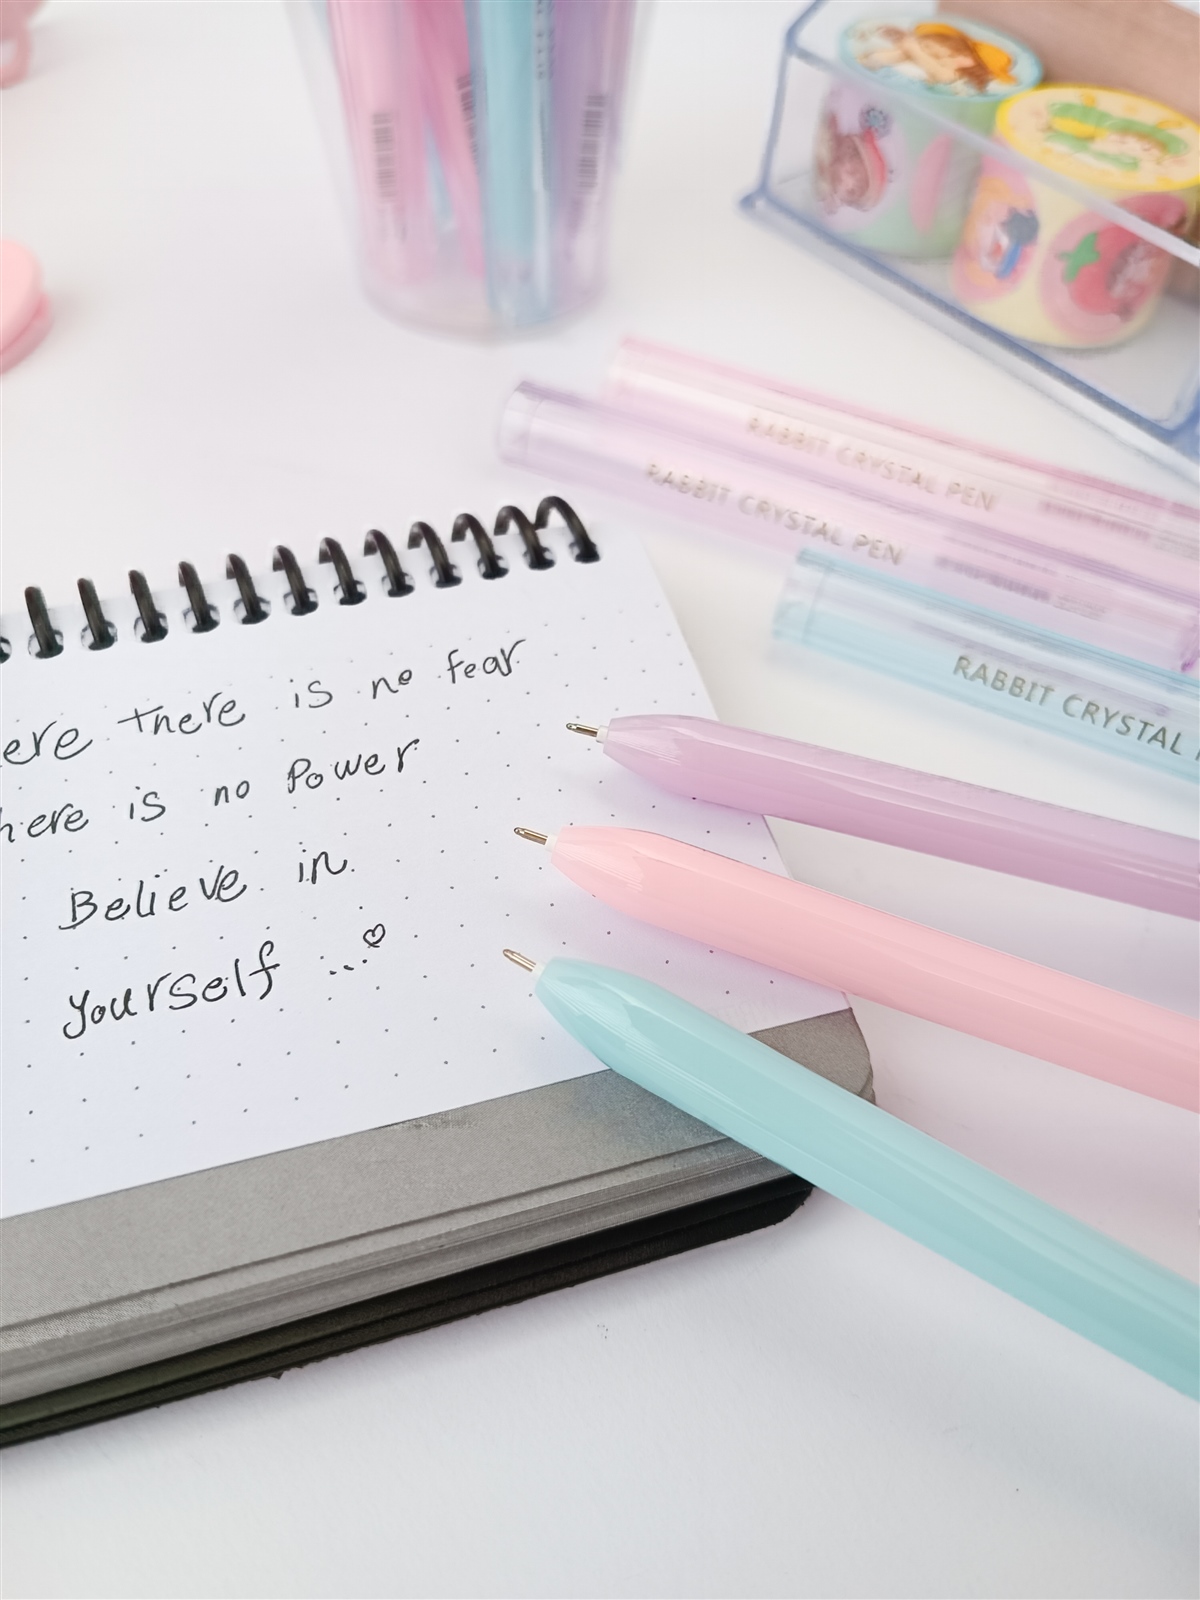 RABBIT CRYSTAL PEN
RABBIT CRYSTAL PEN
RABBIT CRYSTAL
ere there is no fear
here is no Power
Believe in
yourself ...♡